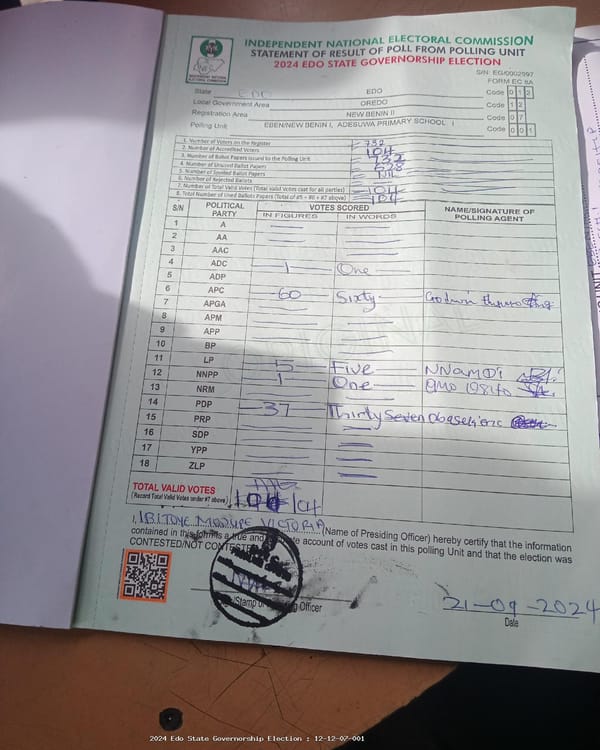 INDEPENDENT NATIONAL ELECTORAL COMMISSION
STATEMENT OF RESULT OF POLL FROM POLLING UNIT
2024 EDO STATE GOVERNORSHIP ELECTION
S/N: EG/0002597
FORM EC 8A
State EDO EDO Code 0 1 2
Local Government Area OREDO Code 1 2
Registration Area NEW BENIN II Code 0 7
Polling Unit EBEN/NEW BENIN I, ADESUWA PRIMARY SCHOOL I Code 0 0 1
1. Number of Voters on the Register 732
2. Number of Accredited Voters 104
3. Number of Ballot Papers Issued to the Polling Unit 732
4. Number of Unused Ballot Papers
5. Number of Spoiled Ballot Papers
6. Number of Rejected Ballots
7. Number of Total Valid Votes (Total Valid Votes cast for all parties) 104
8. Total Number of Used Ballots Papers (Total of #5 + #6 + #7 above) 104
S/N POLITICAL PARTY VOTES SCORED NAME/SIGNATURE OF POLLING AGENT
IN FIGURES IN WORDS
1 A
2 AA
3 AAC
4 ADC 1 One
5 ADP
6 APC 60 Sixty Godwin
7 APGA
8 APM
9 APP
10 BP
11 LP 5 Five NNAMDI
12 NNPP 1 One
13 NRM
14 PDP 37 Thirty Seven
15 PRP
16 SDP
17 YPP
18 ZLP
TOTAL VALID VOTES 104
(Record Total Valid Votes under #7 above)
I, VICTORIA (Name of Presiding Officer) hereby certify that the information
contained in this form is a true and account of votes cast in this polling Unit and that the election was
CONTESTED/NOT CONTESTED
/Stamp of Officer
21-09-2024
Date
2024 Edo State Governorship Election : 12-12-07-001